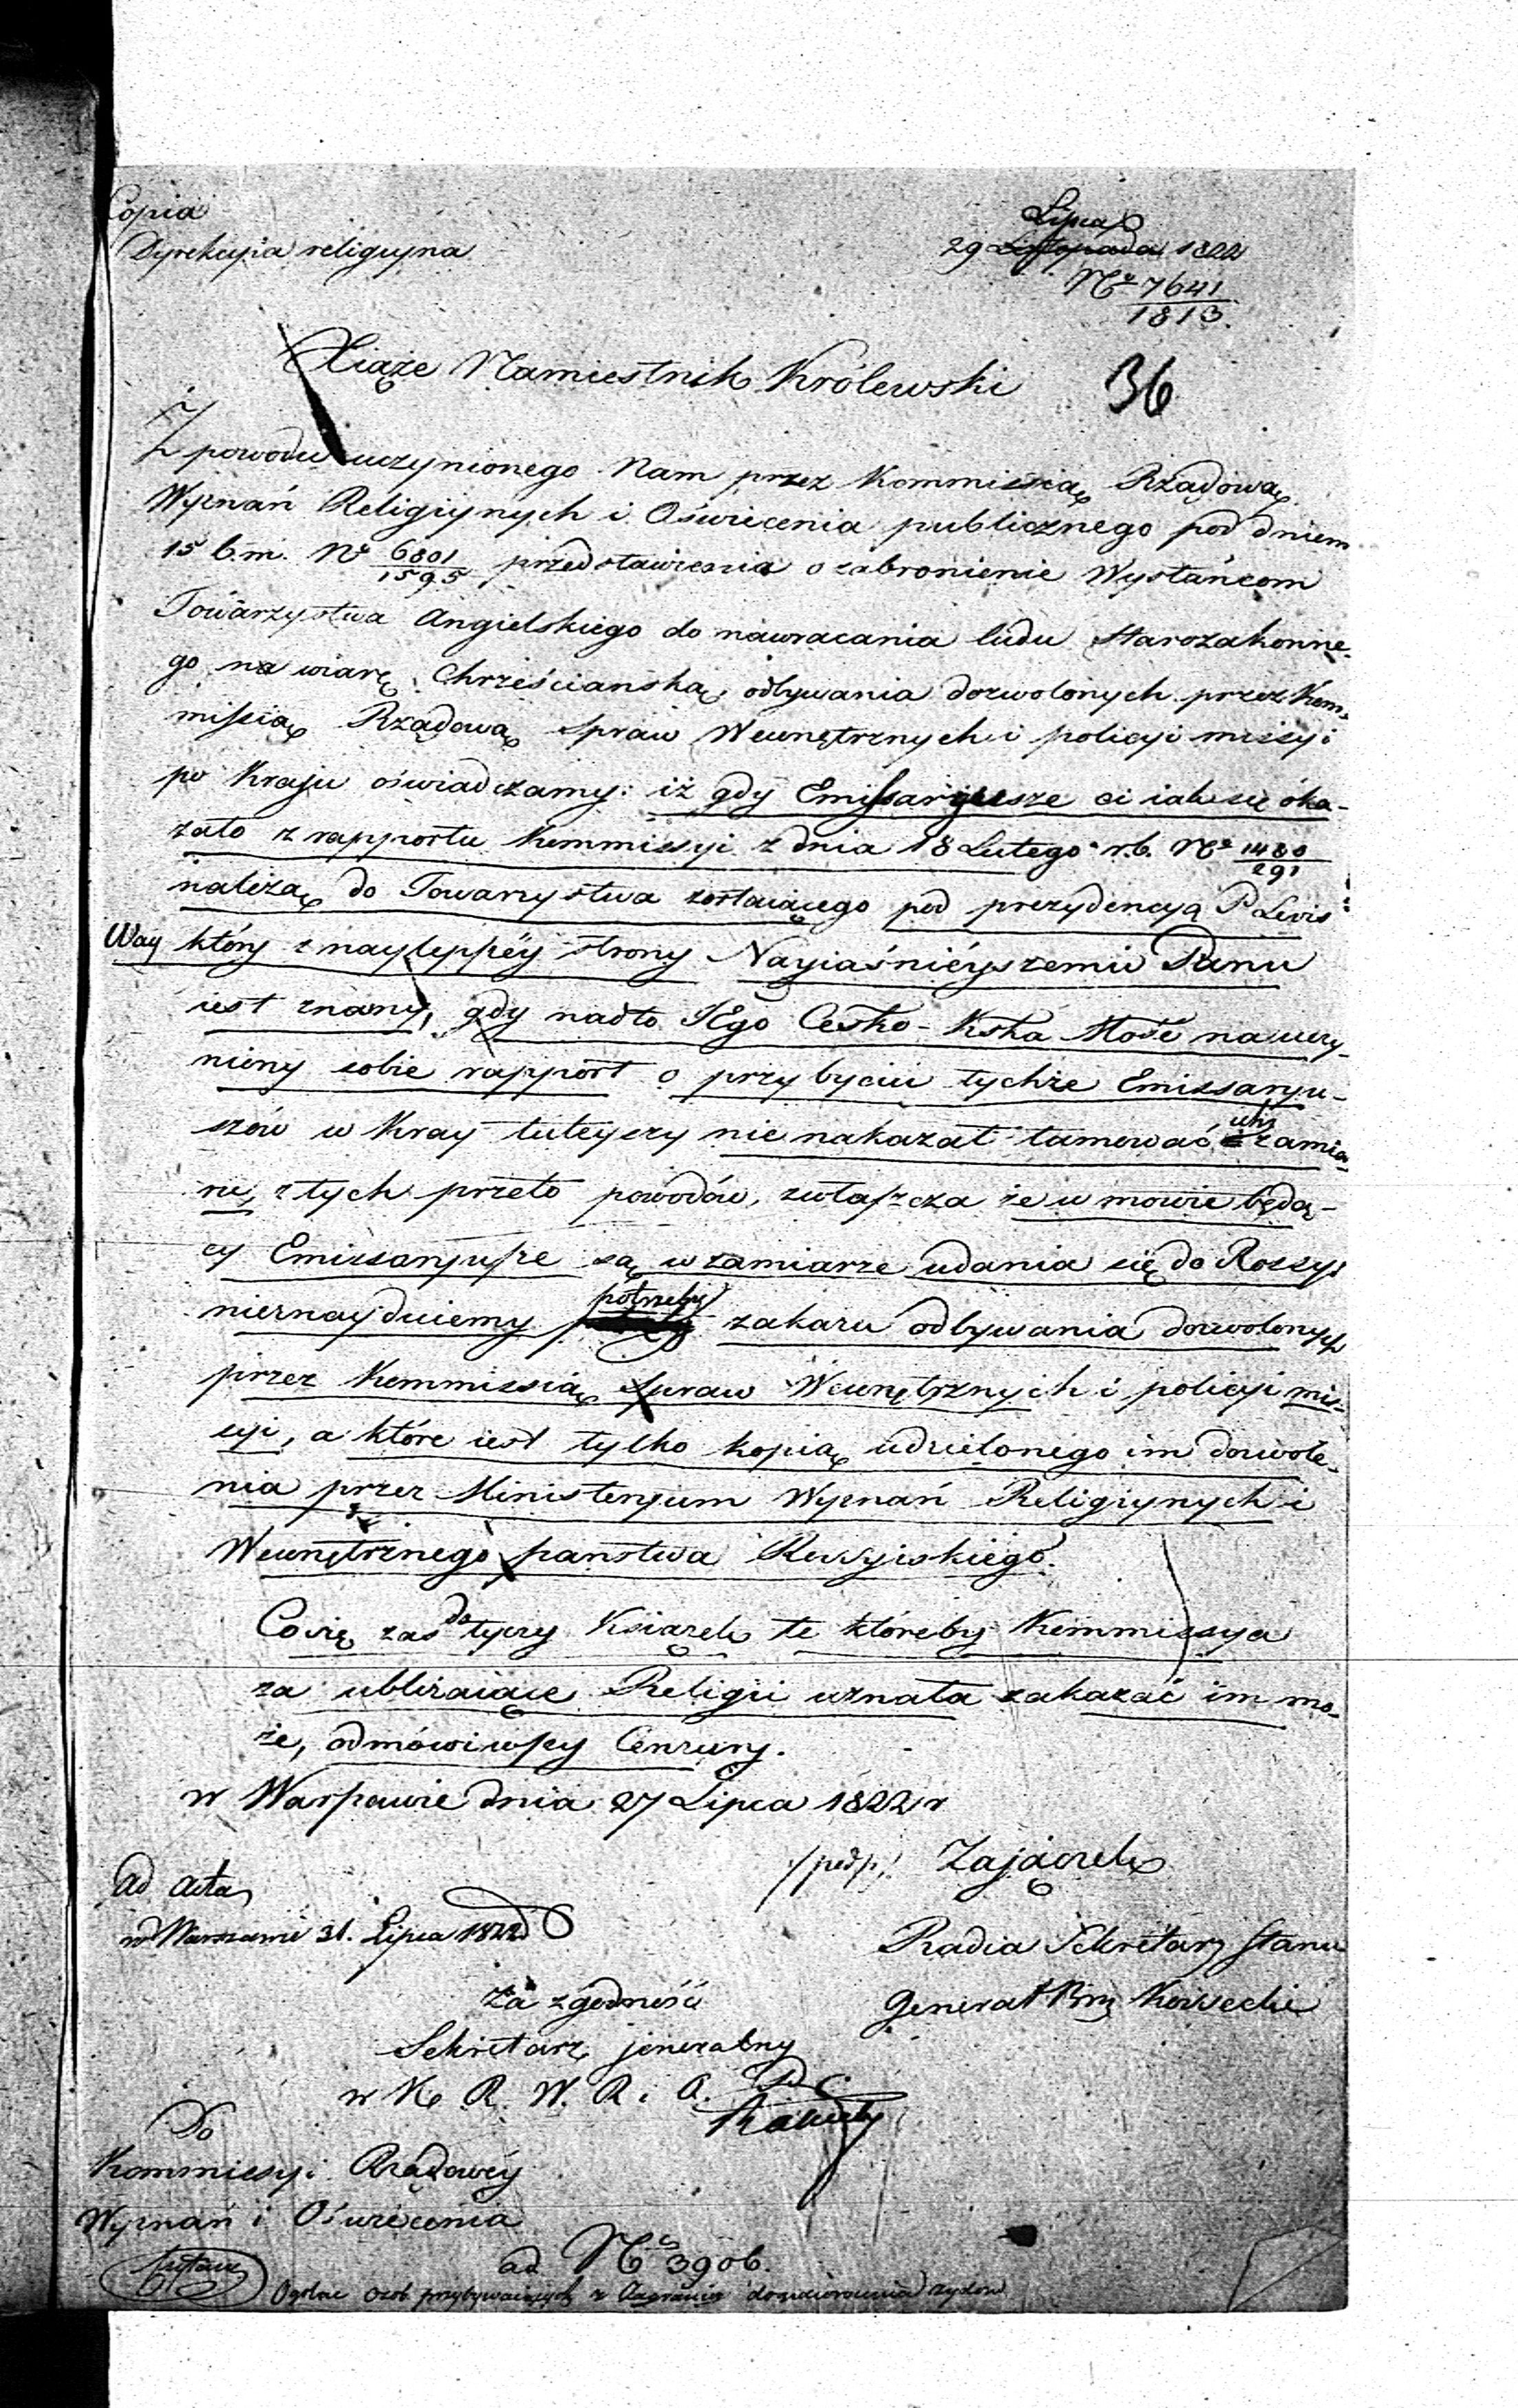 Copia
Dyrekcyia religiyna
Lipca
29 Listopada 1822
No 7641
1813.
Xiąże Namiestnik Królewski
36
Z powodu uczynionego Nam przez Kommissią Rządową
Wyznań Religiynych i Oświecenia publicznego pod dniem
15 b.m. No 6801/1595 przedstawienia o zabronienie Wysłańcom
Towarzystwa Angielskiego do nawracania ludu Starozakonne-
go na wiarę Chrześcianską, odbywania dozwolonych przez Kom-
missią Rządową Spraw Wewnętrznych i policyi missyi
po Kraju oświadczamy: iż gdy Emissaryusze ci iak się oka-
zało z rapportu Kommissyi z dnia 18 Lutego r.b. No 1480/291
należą do Towarzystwa zostaiącego pod prezydencyą P Levis
Way który z nayleppéy strony Nayiaśniéyszemu Panu
iest znany, gdy nadto JEgo Cesko-Kska Mość na uczy-
niony sobie rapport o przybyciu tychże Emissaryu-
szów w Kray tuteyszy nie nakazał tamować ich zamia-
ru, z tych przeto powodów, zwłaszcza że w mowie będą-
cy Emissaryusze są w zamiarze udania się do Rossyi
nieznayduiemy potrzeby zakazu odbywania dozwolonych
przez Kommissią Spraw Wewnętrznych i policyi mis-
syi, a które iest tylko kopią udzielonego im dozwole-
nia przez Ministeryum Wyznań Religiynych i
Wewnętrznego państwa Rossyiskiégo.
Co się zas do tyczy Książek te któreby Kommissya
za ubliżaiące Religii uznała zakazać im mo-
że, odmówiwszy Cenzury.
w Warszawie dnia 27 Lipca 1822 r
/podp:/ Zajączek
ad acta
w Warszawie 31. Lipca 1822
Radca Sekretarz Stanu
Generał Bry Kossecki
Za zgodność
Sekretarz jeneralny
w K. R. W. R. i O.
Do
Kommissyi Rządowéy
Wyznań i Oświecenia
ad No 3906.
Ogólne osob przybywaiących z Zagranicy do nawrócenia żydów